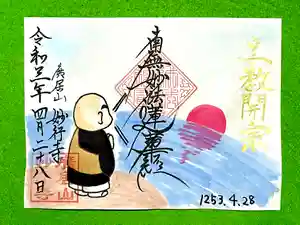 立教開宗
南無妙法蓮華経
長居山 妙行寺
令和三年四月二十八日
1253.4.28